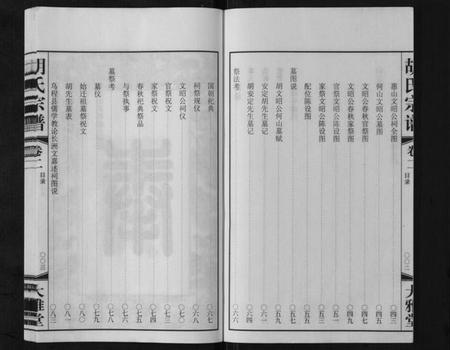 胡氏宗譜
卷二
目录
大雅堂
惠山文昭公祠全图 〇四三
何山文昭公墓图 〇四五
文昭公春秋官祭图
文昭公春秋家祭图 〇四九
官祭文昭公陈设图
家祭文昭公陈设图
配位陈设图
墓图说
胡文昭公何山墓赋
安定胡先生墓记 〇六一
胡安定先生墓记 〇六四
祭法考 〇六六
国朝祀典 〇六七
祠祭规仪 〇六八
文昭公祠仪
官祭祝文
家祭祝文
春秋祀典祭品 〇七四
与祭执事 〇七六
墓祭考 〇七七
墓位 〇七九
始迁祖墓祭祝文
胡先生墓表 〇八一
乌程县儒学教论长洲文嘉述祠图说 〇八三
胡氏宗譜
卷二
目录
大雅堂